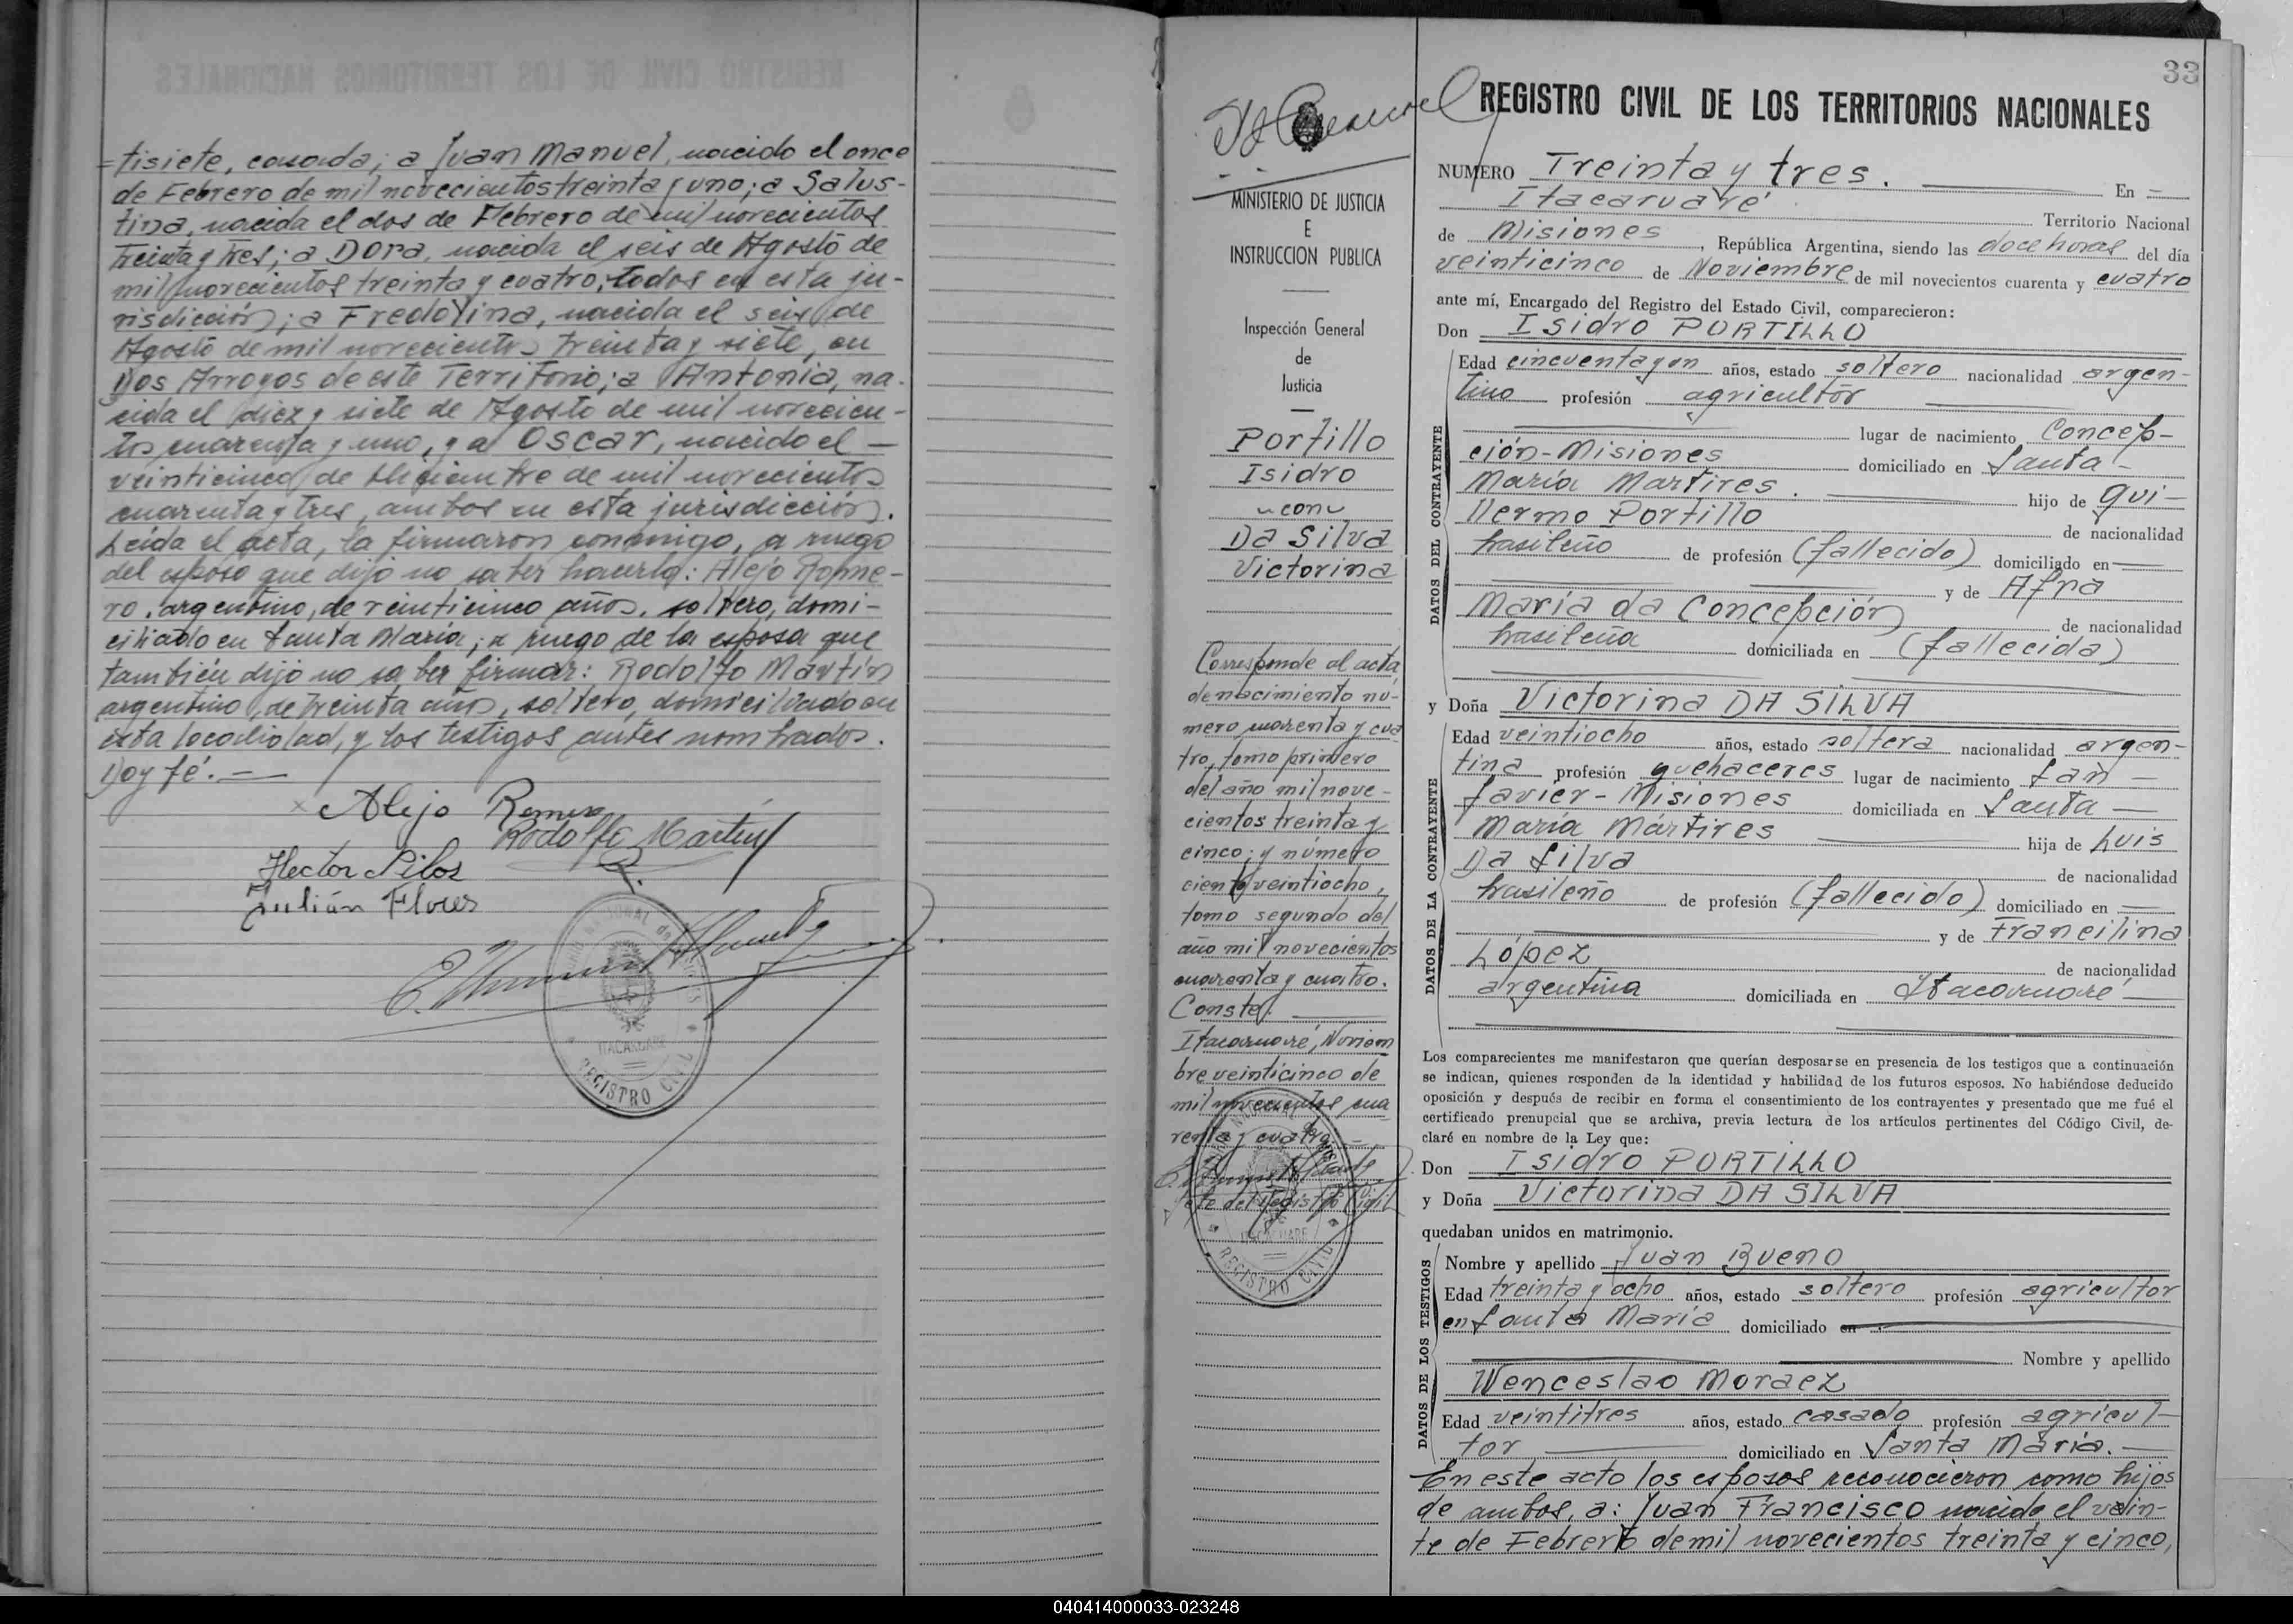 =tisiete, casada; a Juan Manuel, nacido el once
de Febrero de mil novecientos treinta y uno; a Salus-
tina, nacida el dos de Febrero de mil novecientos
treinta y tres; a Dora, nacida el seis de Agosto de
mil novecientos treinta y cuatro, todos en esta ju-
risdicción; a Fredolina, nacida el seis de
Agosto de mil novecientos treinta y siete, en
Dos Arroyos de este Territorio; a Antonia, na-
cida el diez y siete de Agosto de mil novecien-
tos cuarenta y uno, y a Oscar, nacido el —
veinticinco de Diciembre de mil novecientos
cuarenta y tres, ambos en esta jurisdicción.
Leída el acta, la firmaron conmigo, a ruego
del esposo que dijo no saber hacerlo: Alejo Rome-
ro, argentino, de veinticinco años, soltero, domi-
ciliado en Santa María; a ruego de la esposa que
también dijo no saber firmar: Rodolfo Martin
argentino, de treinta años, soltero, domiciliado en
esta localidad, y los testigos antes nombrados.
Doy fé. —
x Alejo Romero
Rodolfo Martin
Hector
Julián Flores
ITACARUARE
REGISTRO CIVIL
33
REGISTRO CIVIL DE LOS TERRITORIOS NACIONALES
MINISTERIO DE JUSTICIA
E
INSTRUCCION PUBLICA
Inspección General
de
Justicia
Portillo
Isidro
con
Da Silva
Victorina
Corresponde al acta
de nacimiento nú-
mero cuarenta y cua
tro, tomo primero
del año mil nove-
cientos treinta y
cinco; y número
ciento veintiocho,
tomo segundo del
año mil novecientos
cuarenta y cuatro.
Conste.
Itacaruaré, Noviem
bre veinticinco de
mil novecientos cua
renta y cuatro.—
Jefe del Registro Civil
ITACARUARE
REGISTRO CIVIL
NUMERO Treinta y tres. En
Itacaruaré Territorio Nacional
de Misiones, República Argentina, siendo las doce horas del día
veinticinco de Noviembre de mil novecientos cuarenta y cuatro
ante mí, Encargado del Registro del Estado Civil, comparecieron:
Don Isidro PORTILLO
DATOS DEL CONTRAYENTE
Edad cincuenta y un años, estado soltero nacionalidad argen-
tino profesión agricultor
lugar de nacimiento Concep-
ción-Misiones domiciliado en Santa-
María Martires. hijo de Gui-
llermo Portillo de nacionalidad
brasileño de profesión (fallecido) domiciliado en —
y de Afra
María da Concepción de nacionalidad
brasileña domiciliada en (fallecida)
y Doña Victorina DA SILVA
DATOS DE LA CONTRAYENTE
Edad veintiocho años, estado soltera nacionalidad argen-
tina profesión quehaceres lugar de nacimiento San —
Javier-Misiones domiciliada en Santa —
María Mártires hija de Luis
Da Silva de nacionalidad
brasileño de profesión (fallecido) domiciliado en —
y de Francilina
López de nacionalidad
argentina domiciliada en Itacaruaré —
Los comparecientes me manifestaron que querían desposarse en presencia de los testigos que a continuación
se indican, quienes responden de la identidad y habilidad de los futuros esposos. No habiéndose deducido
oposición y después de recibir en forma el consentimiento de los contrayentes y presentado que me fué el
certificado prenupcial que se archiva, previa lectura de los artículos pertinentes del Código Civil, de-
claré en nombre de la Ley que:
Don Isidro PORTILLO
y Doña Victorina DA SILVA
quedaban unidos en matrimonio.
DATOS DE LOS TESTIGOS
Nombre y apellido Juan Bueno
Edad treinta y ocho años, estado soltero profesión agricultor
en Santa María domiciliado en
Nombre y apellido
Wenceslao Moraez
Edad veintitres años, estado casado profesión agricul-
tor domiciliado en Santa María. —
En este acto los esposos reconocieron como hijos
de ambos, a: Juan Francisco nacido el vein-
te de Febrero de mil novecientos treinta y cinco,
040414000033-023248